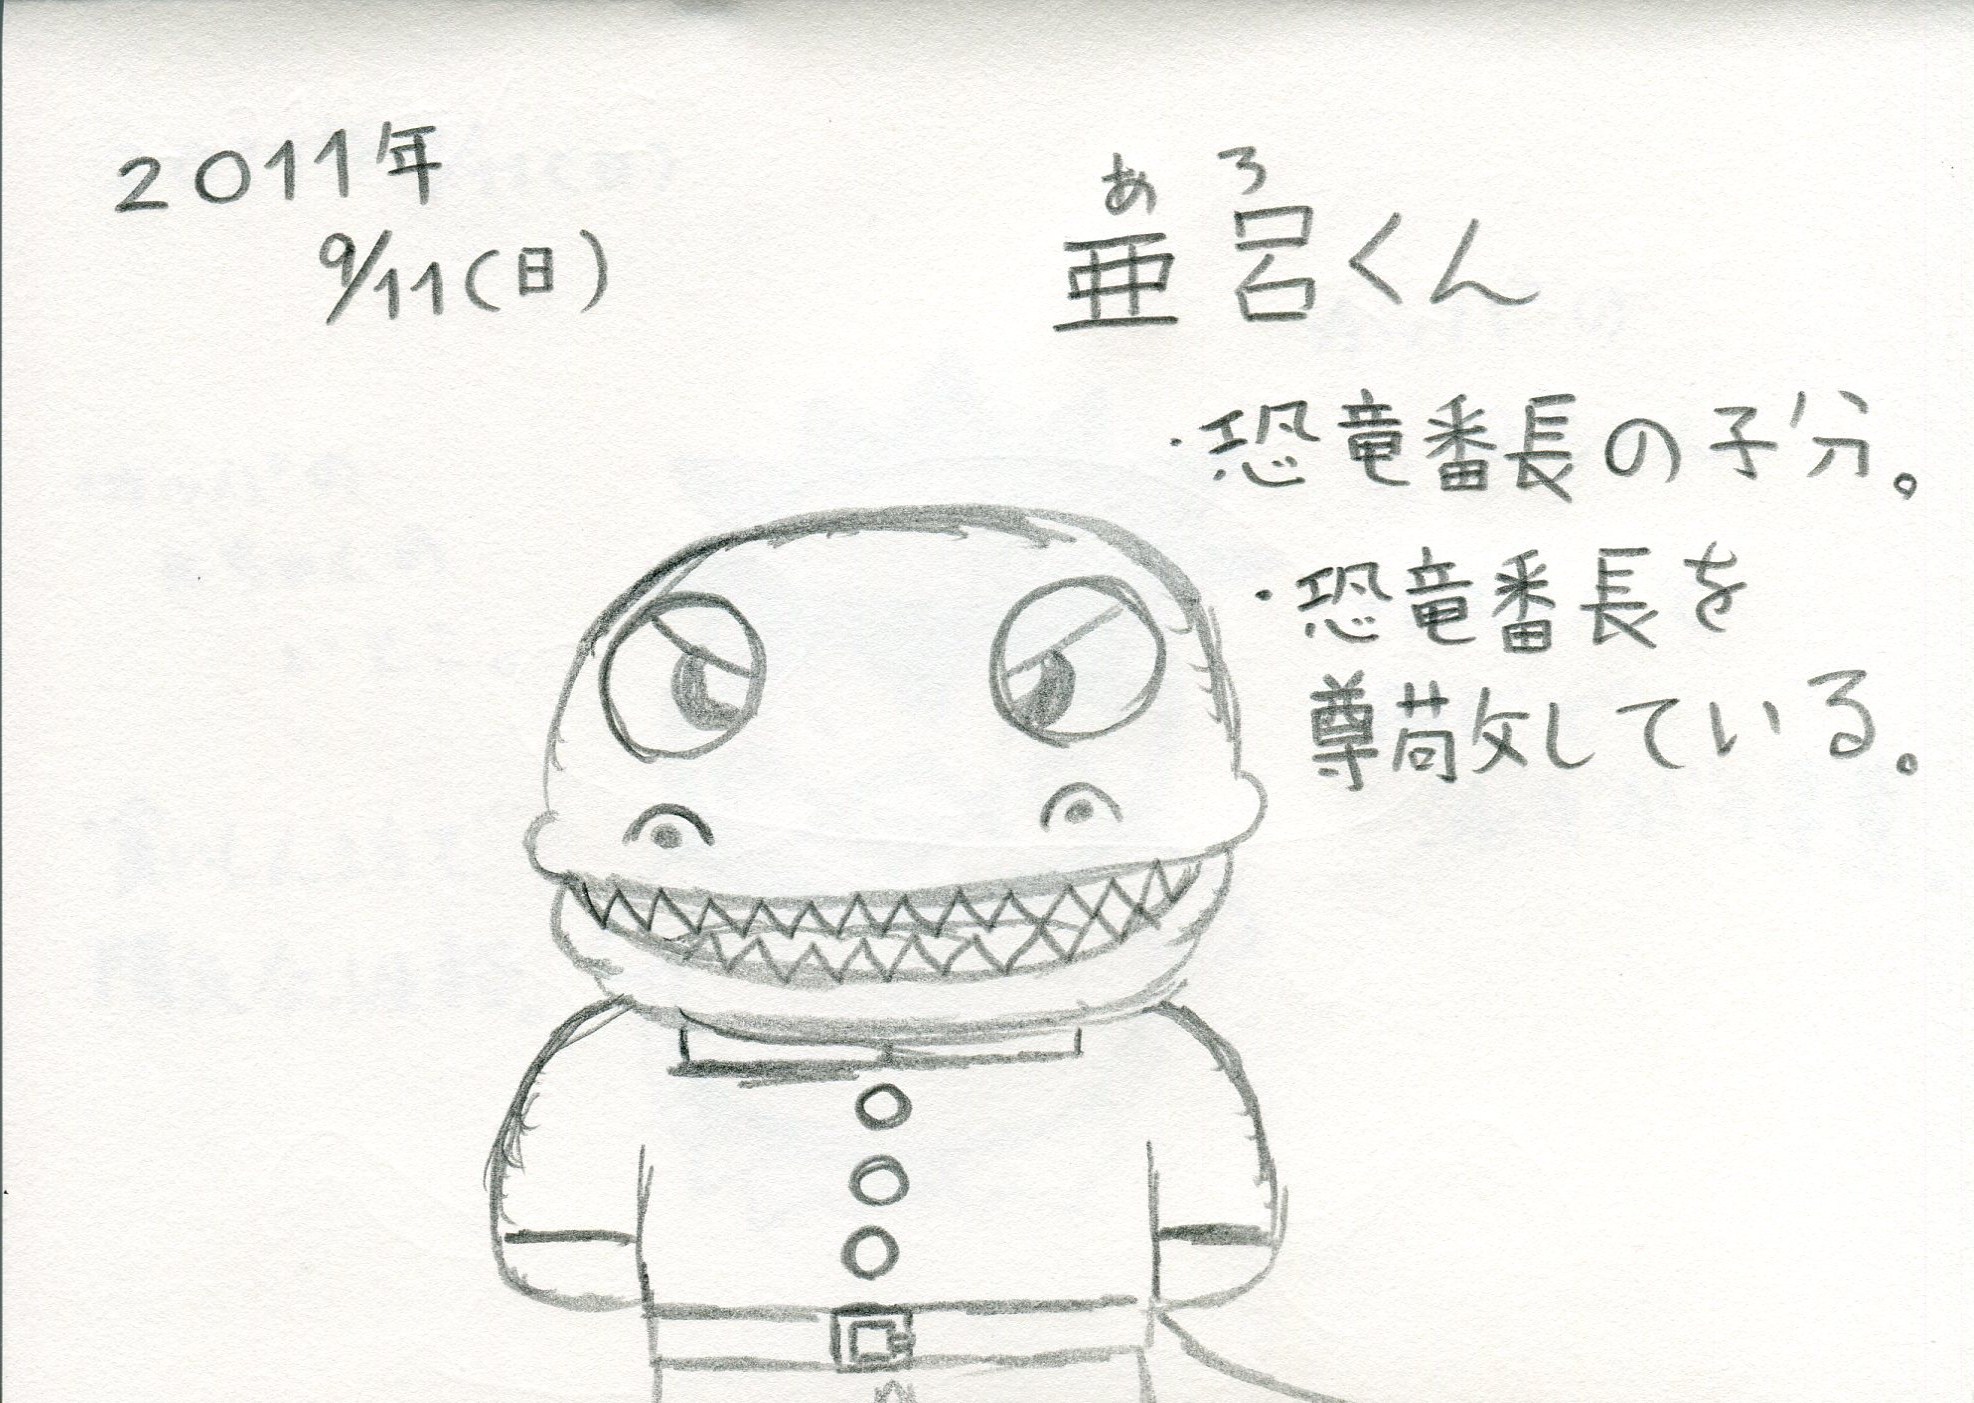 2011年
9/11(日)
あろ
亜呂くん
・恐竜番長の子分。
・恐竜番長を
尊敬している。